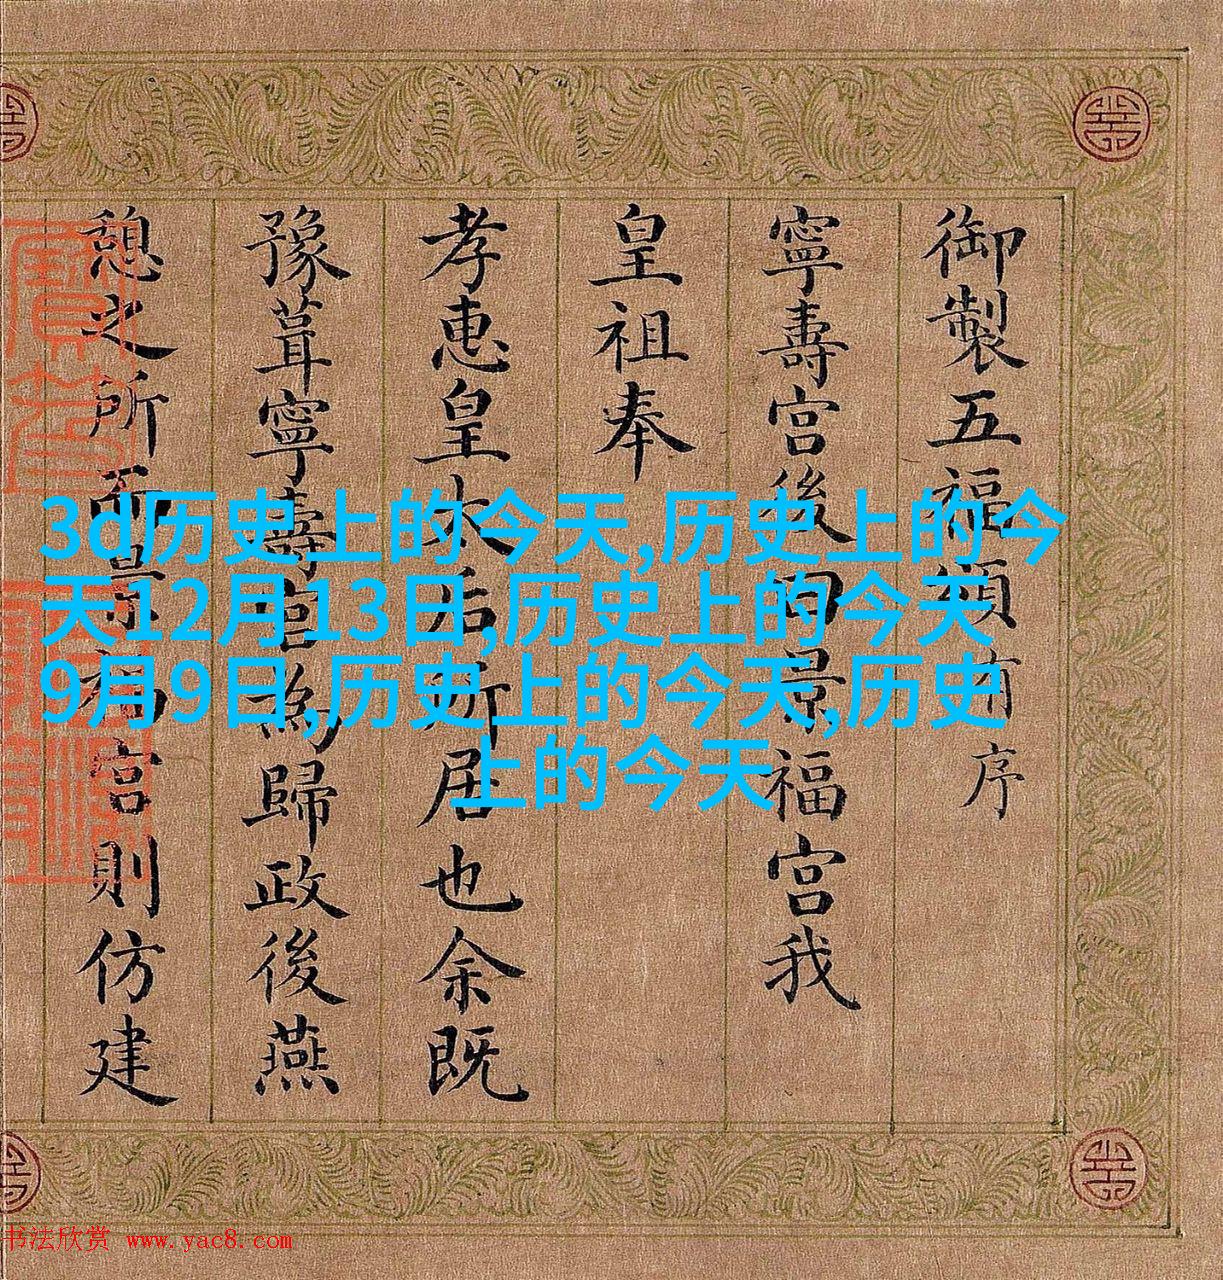 御製五福頌有序
寧壽宮後曰景福宮我
皇祖奉
孝惠皇太后所居也余既
豫葺寧壽宮為歸政後燕
憩之所而景福宮則仿建
3d历史上的今天,历史上的今
天12月13日,历史上的今天
9月9日,历史上的今天,历史
上的今天
书法欣赏 www.yac8.com